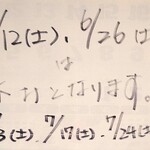 /12(土)、6/26(土
は
なります。
3(土)、7/17(土)、7/24(土